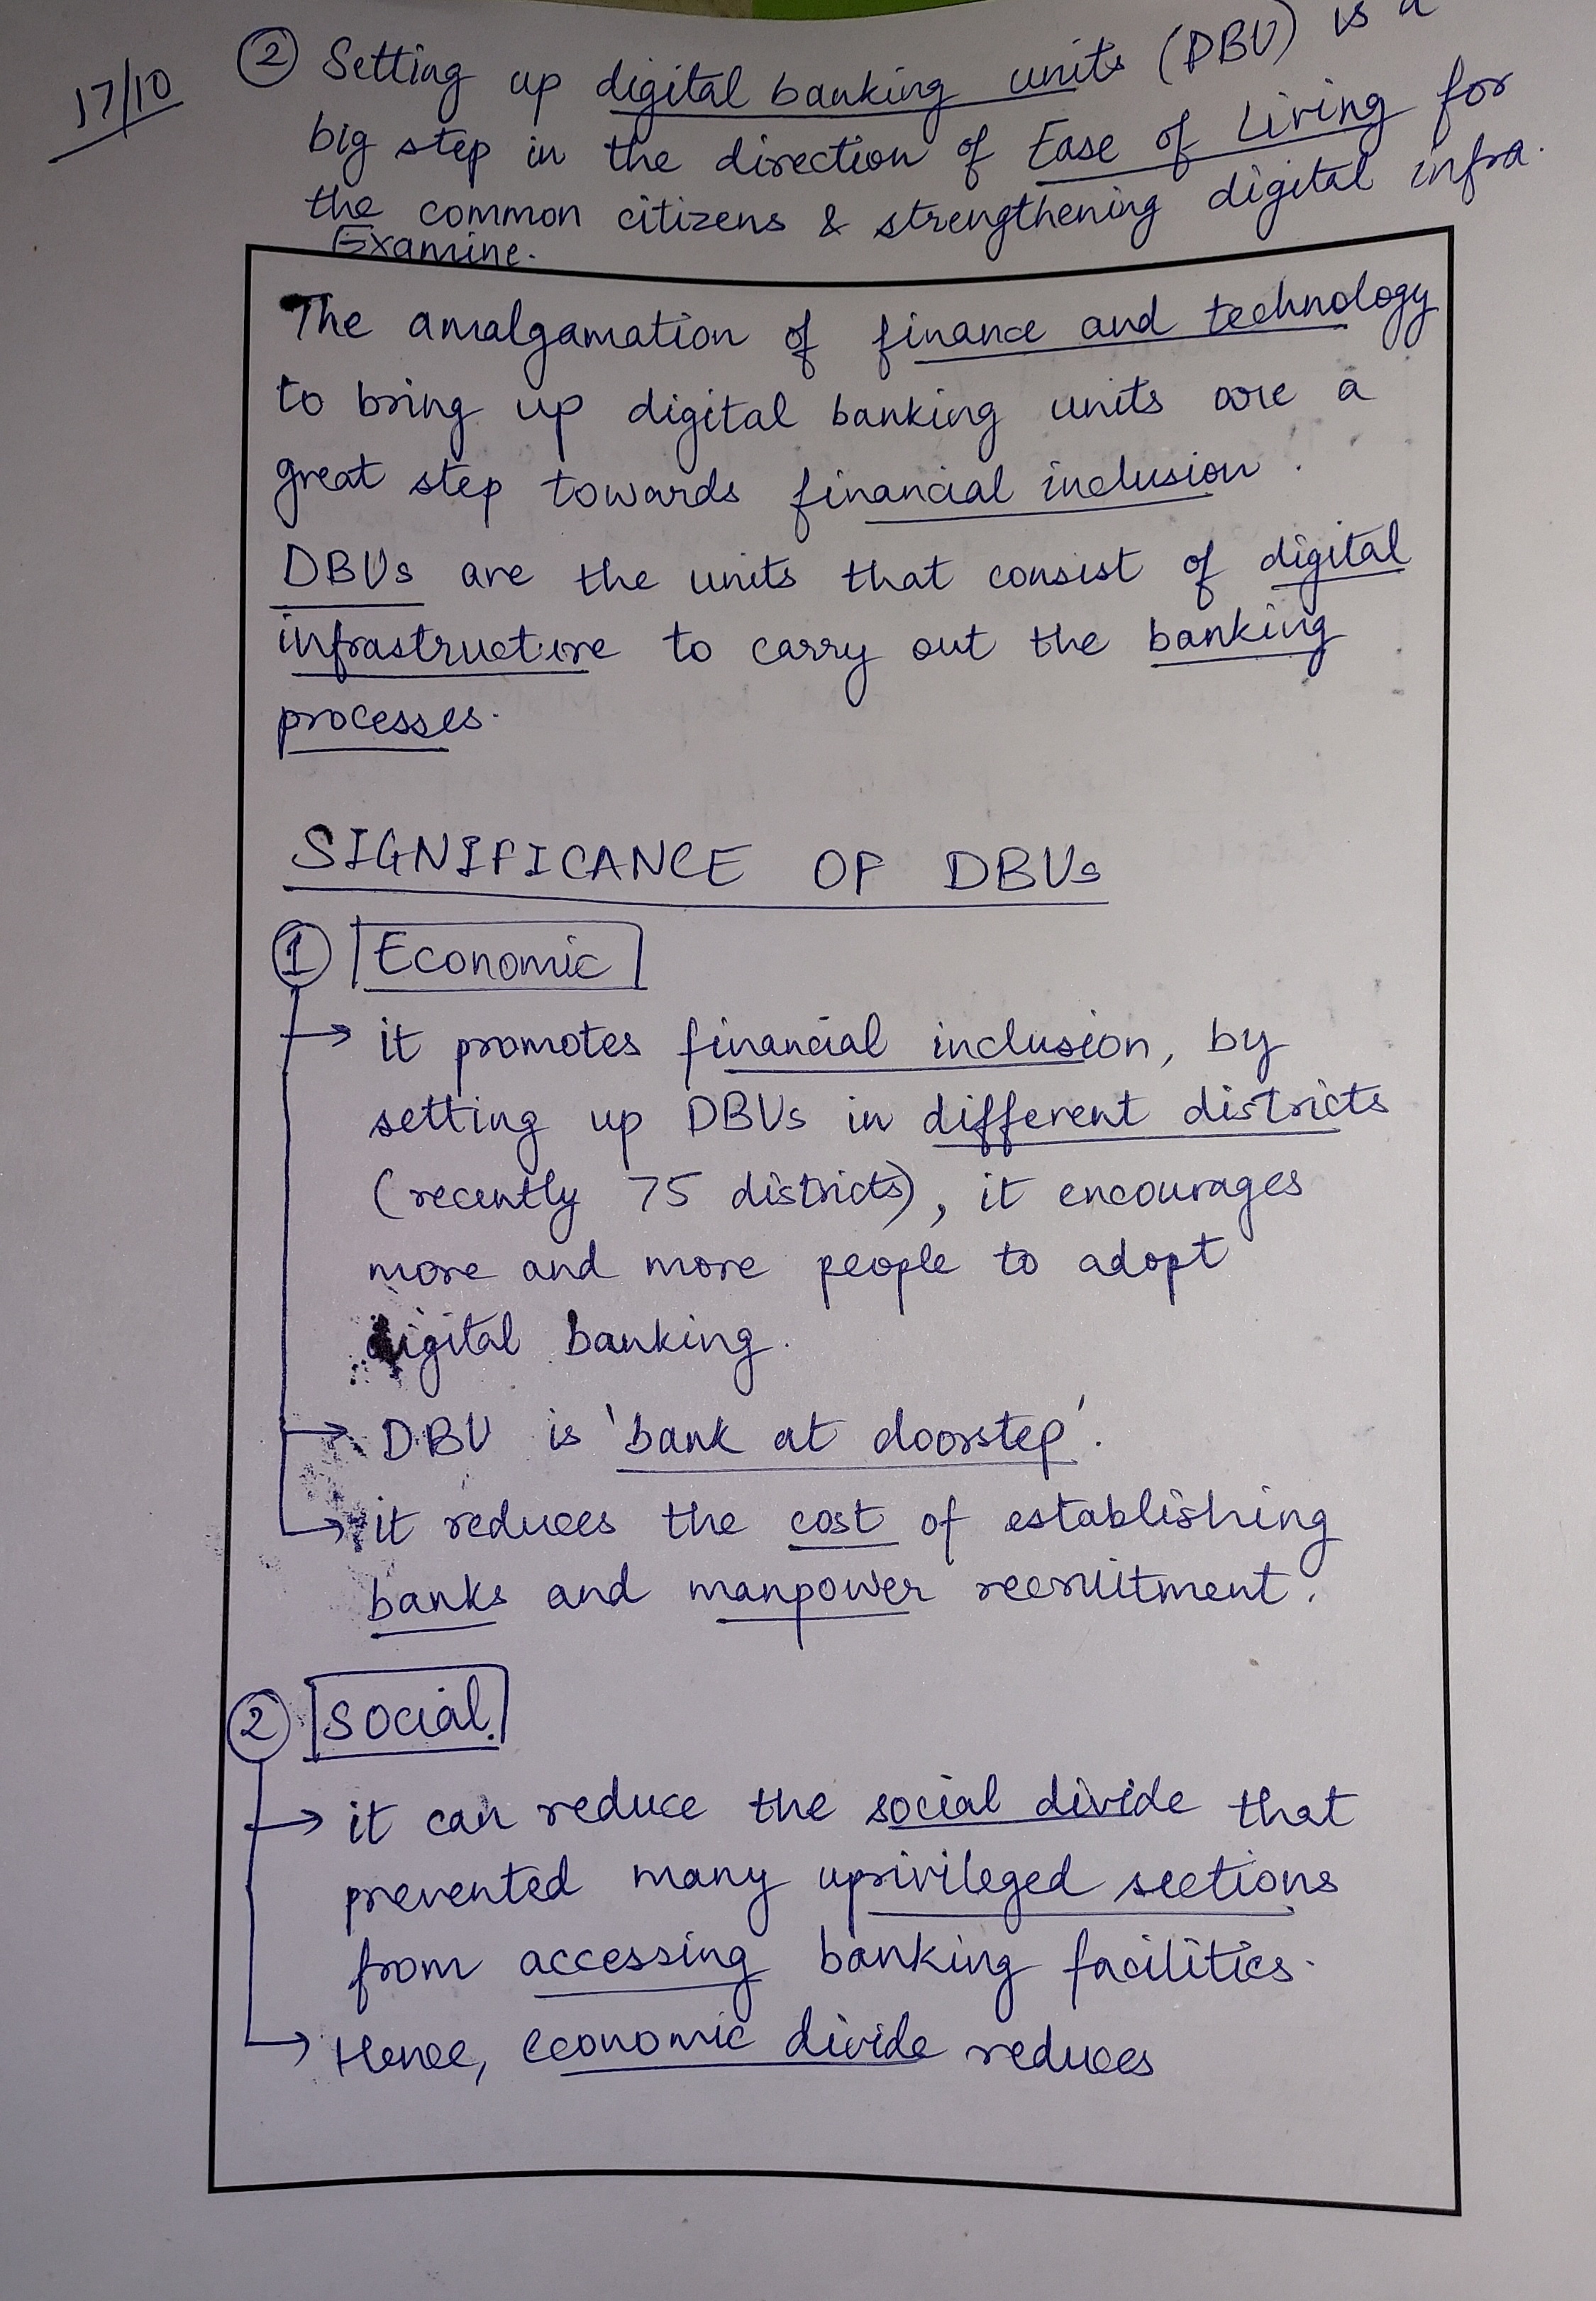 17/10
② Setting up digital banking units (DBU) is a
big step in the direction of Ease of Living for
the common citizens & strengthening digital infra.
Examine.
The amalgamation of finance and technology
to bring up digital banking units are a
great step towards financial inclusion.
DBUs are the units that consist of digital
infrastructure to carry out the banking
processes.
SIGNIFICANCE OF DBUs
① Economic
→ it promotes financial inclusion, by
setting up DBUs in different districts
(recently 75 districts), it encourages
more and more people to adopt
digital banking.
→ DBU is 'bank at doorstep'.
→ it reduces the cost of establishing
banks and manpower recruitment.
② Social.
→ it can reduce the social divide that
prevented many uprivileged sections
from accessing banking facilities.
→ Hence, economic divide reduces